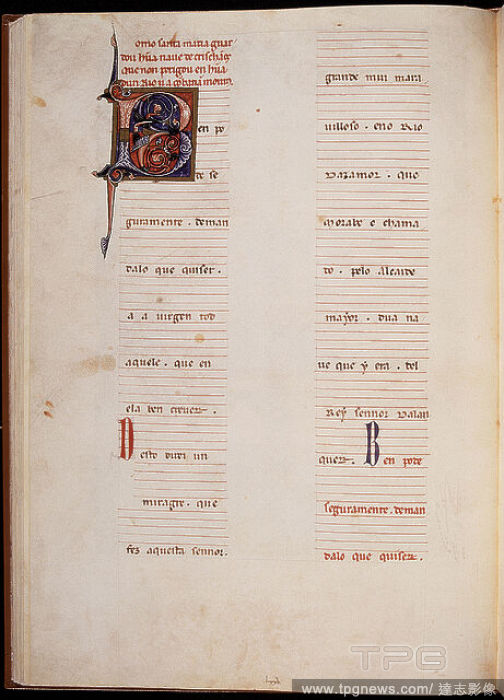 omo santa maria guar
dou hũa naue de crischãos
que non perigou en hũa
en po
de se
guramente. deman
dalo que quiser.
a a uirgen tod
aquele. que en
ela ben creuer.
Desto uuei un
miragre. que
fez aquesta sennor.
grande mui mara
uilloso. eno Rio
Dazamor. que
Morabe e chama
do. pelo alcaide
mayor. dũa na
ue que y era. del
Rey sennor Dalan
quer. Ben pode
seguramente. deman
dalo que quiser.
TPG
www.tpgnews.com/達志影像